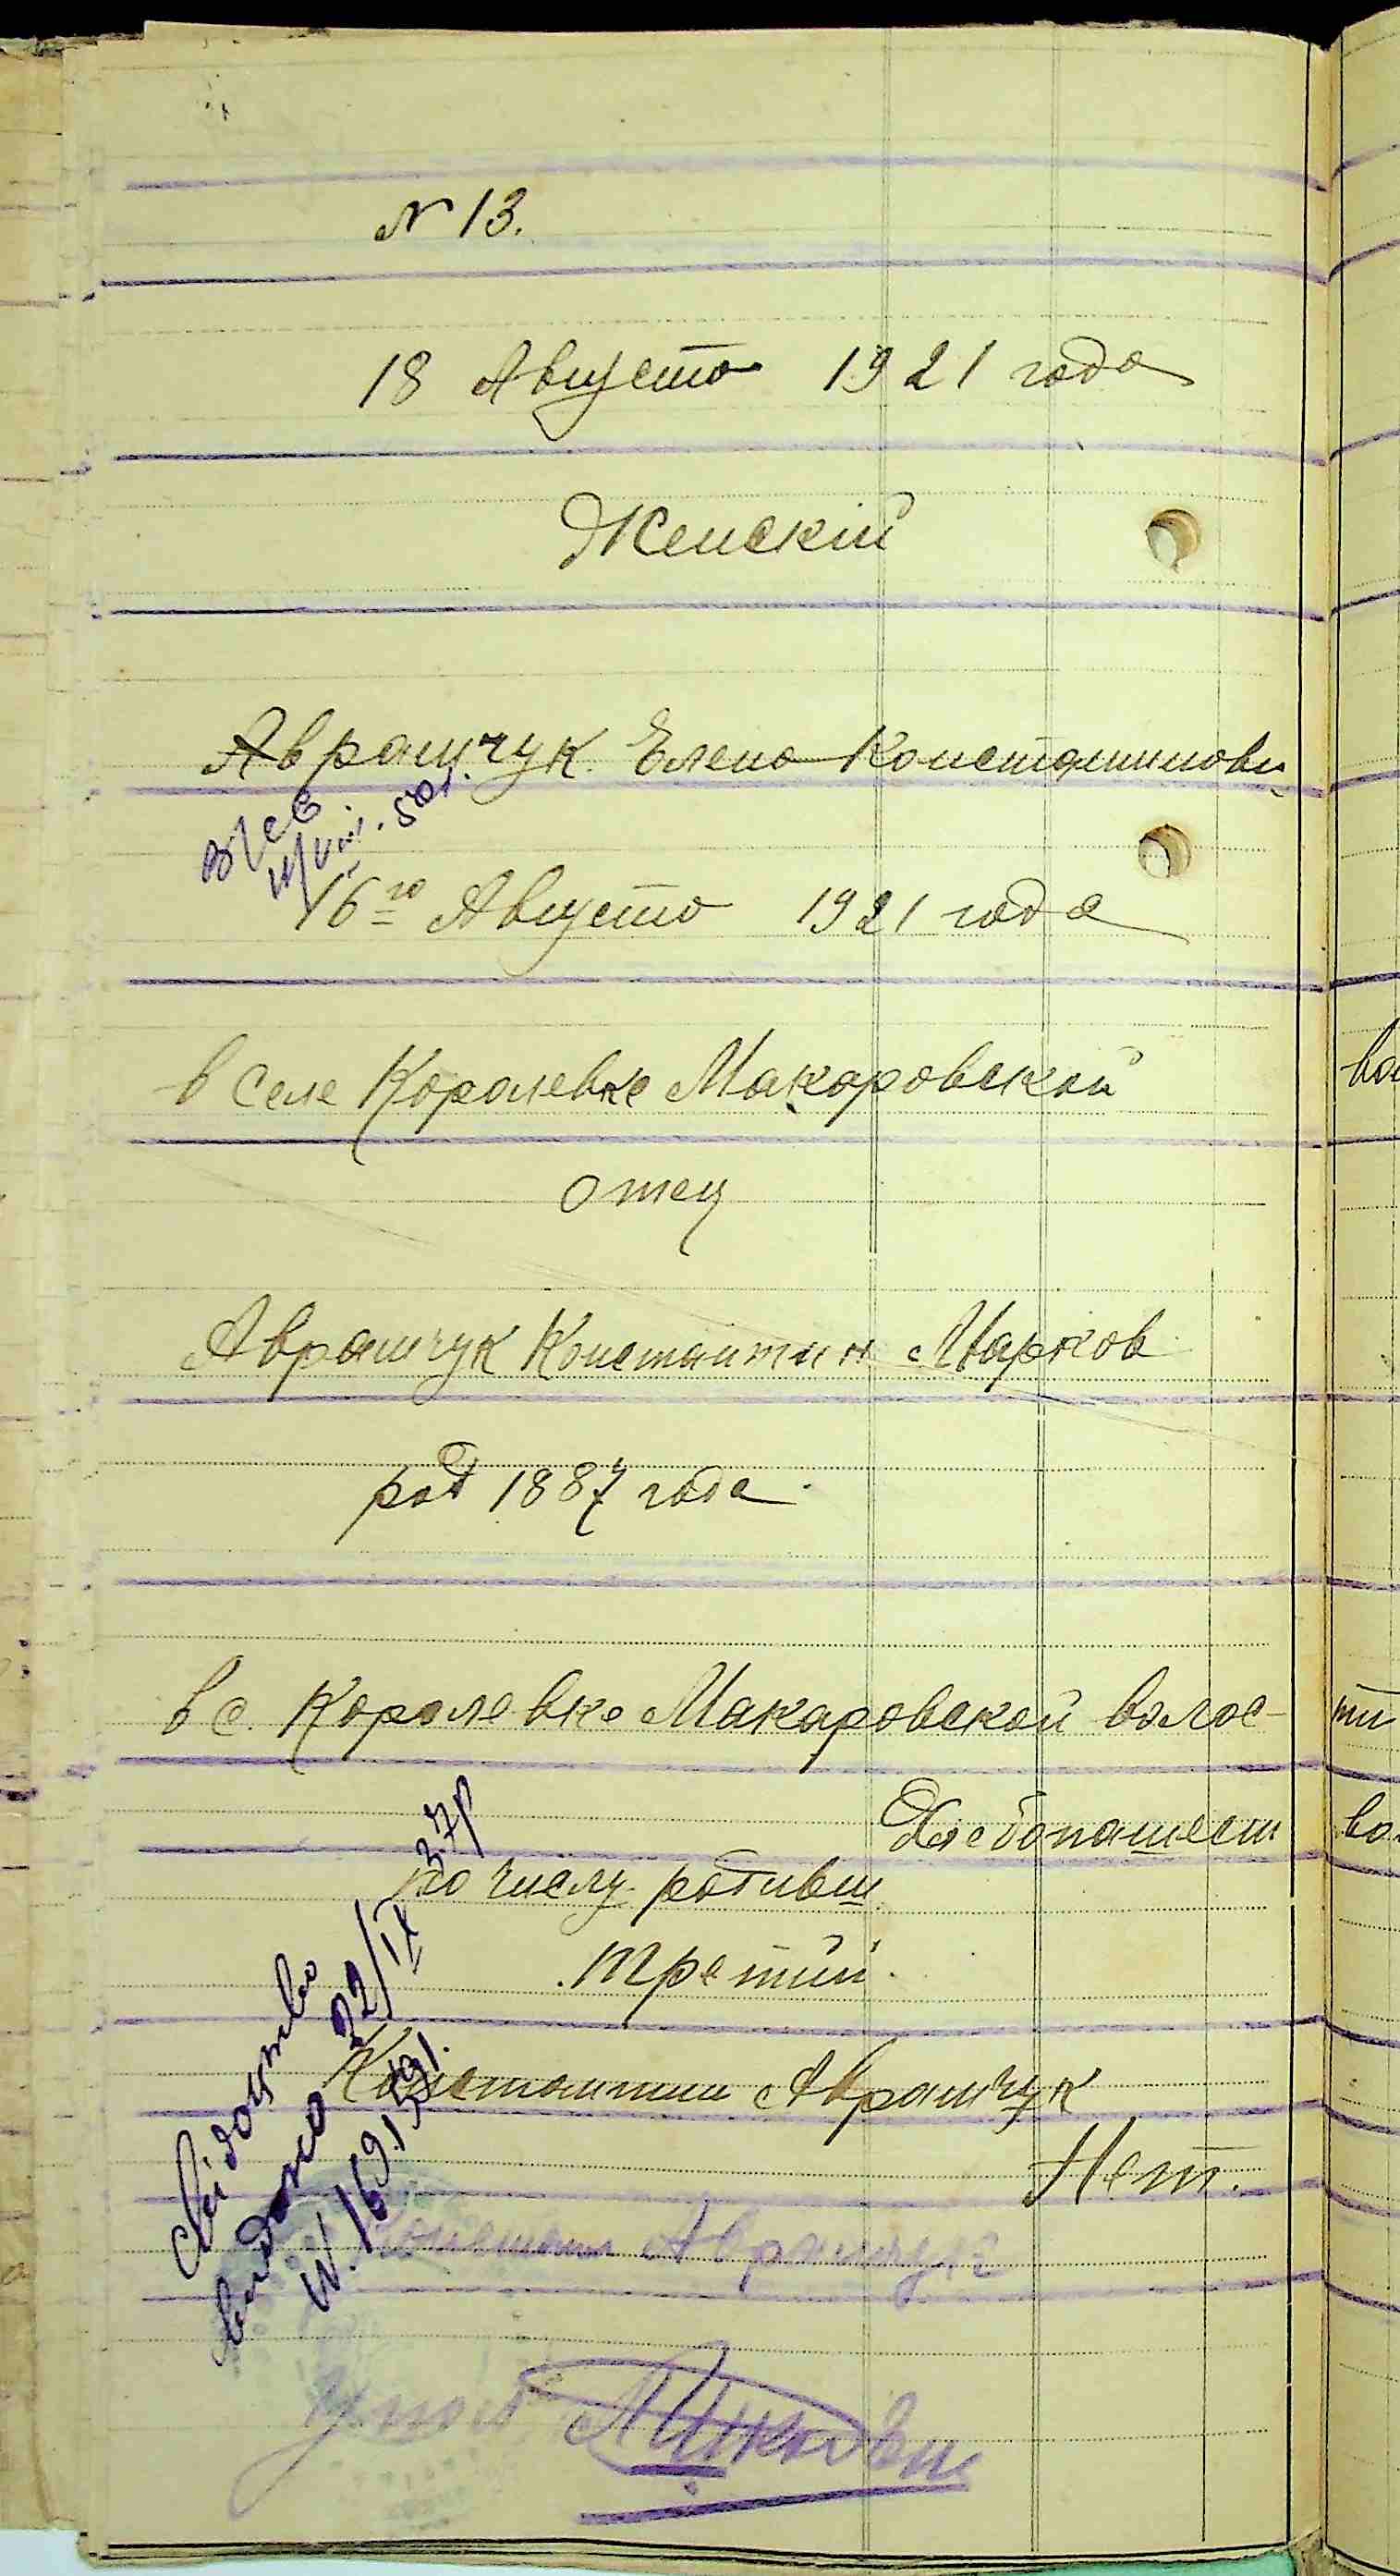 N 13.
18 Августа 1921 года
Женскій
Аврамчук Елена Константиновн
16го Августа 1921 года
в селе Королевке Макаровской
вол
отец
Аврамчук Константин Марков
род 1887 года.
в с. Королевке Макаровской волос-
ти
Хлебопашест
во
по числу родивш.
третий.
Константин Аврамчук
Нет.
Свідоцтво
видано 22/IX 37р
Констант Аврамчук